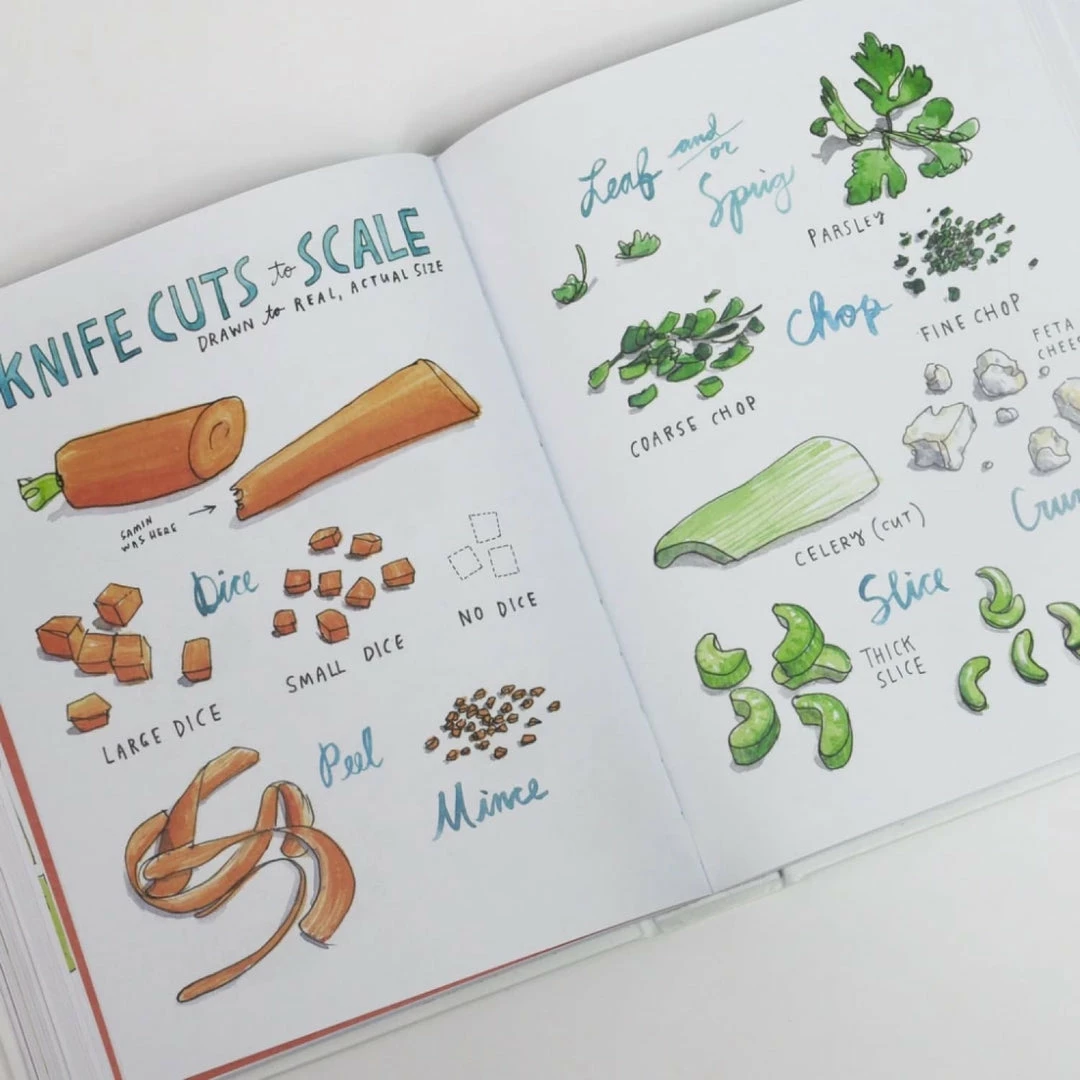 KNIFE CUTS to SCALE
DRAWN to REAL, ACTUAL SIZE
SAMIN
WAS HERE
Dice
LARGE DICE
SMALL DICE
NO DICE
Peel
Mince
Leaf and/or
Sprig
PARSLEY
Chop
FINE CHOP
COARSE CHOP
FETA
CELERY (CUT)
Slice
THICK
SLICE